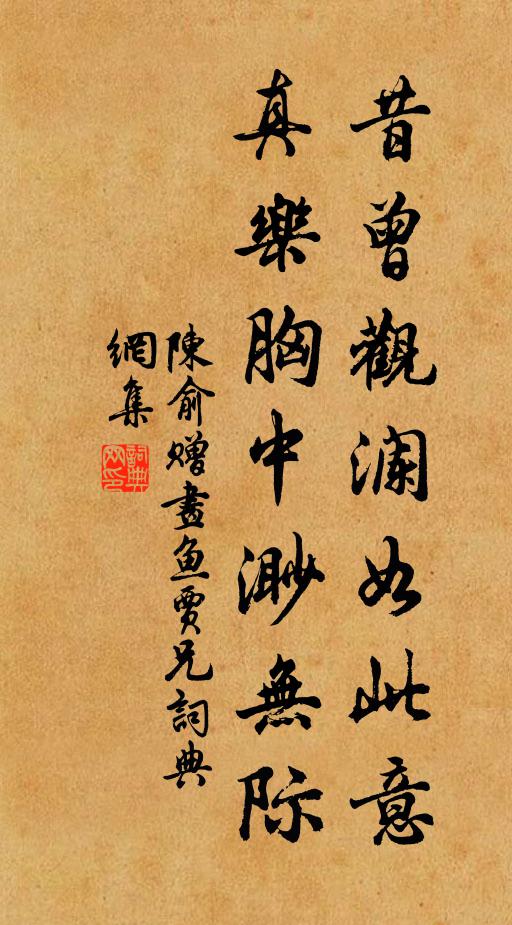 昔曾觀澜如此意
真樂胸中渺無际
陳俞赠畫魚賈兄詞典
網集
詞典網印